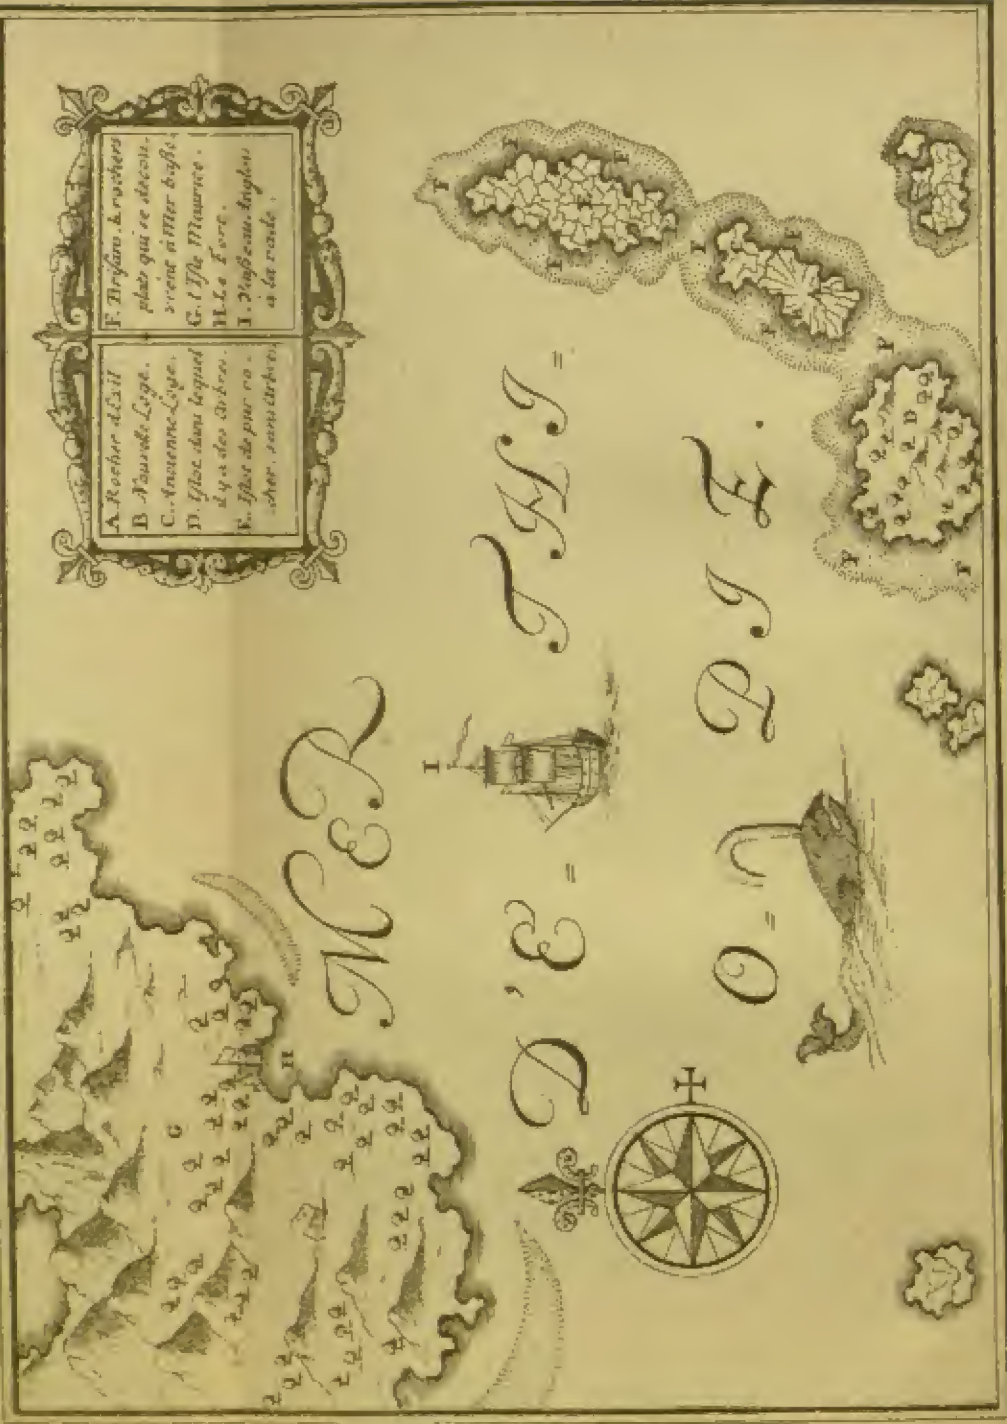 A. Rocher d'Exil
B. Nouvelle Loge.
C. Ancienne Loge.
D. Islot dans lequel
il y a des Arbres.
E. Islot de pur ro-
cher, sans arbres
F. Brisans, & rochers
plats qui se decou-
vrent à Mer basse.
G. l'Isle Maurice.
H. Le Fort.
I. Vaisseau Anglois
à la rade.
MER
D'E = THI =
O = PIE.
I
G
H
F
F
F
F
E
F
F
F
F
D
F
F